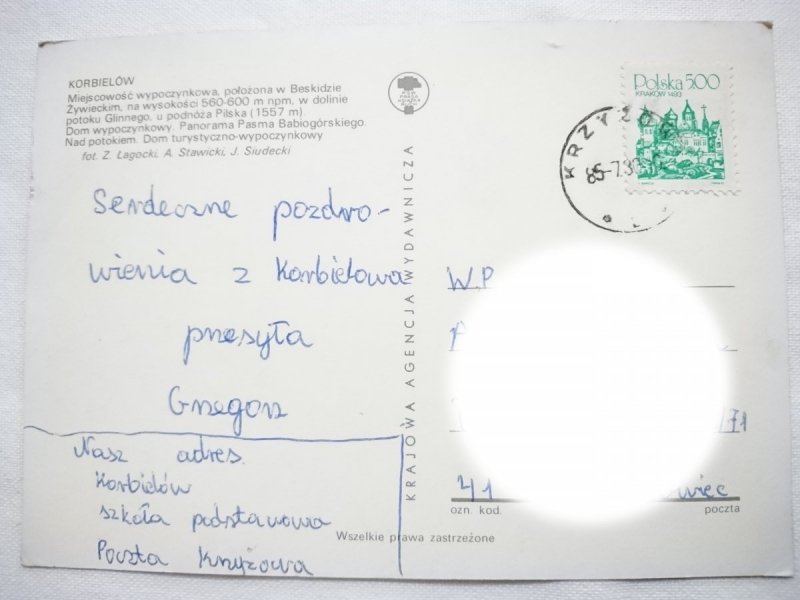 KORBIELÓW
Miejscowość wypoczynkowa, położona w Beskidzie
Żywieckim, na wysokości 560-600 m npm, w dolinie
potoku Glinnego, u podnóża Pilska (1557 m).
Dom wypoczynkowy. Panorama Pasma Babiogórskiego.
Nad potokiem. Dom turystyczno-wypoczynkowy
fot. Z. Łagocki, A. Stawicki, J. Siudecki
Serdeczne pozdro-
wienia z Korbielowa
przesyła
Grzegorz
Nasz adres.
Korbielów
szkoła podstawowa
Poczta Krzyżowa
KRAJOWA AGENCJA WYDAWNICZA
Polska 5.00
KRAKÓW 1493
W.P.
71
41
ozn. kod.
poczta
Wszelkie prawa zastrzeżone